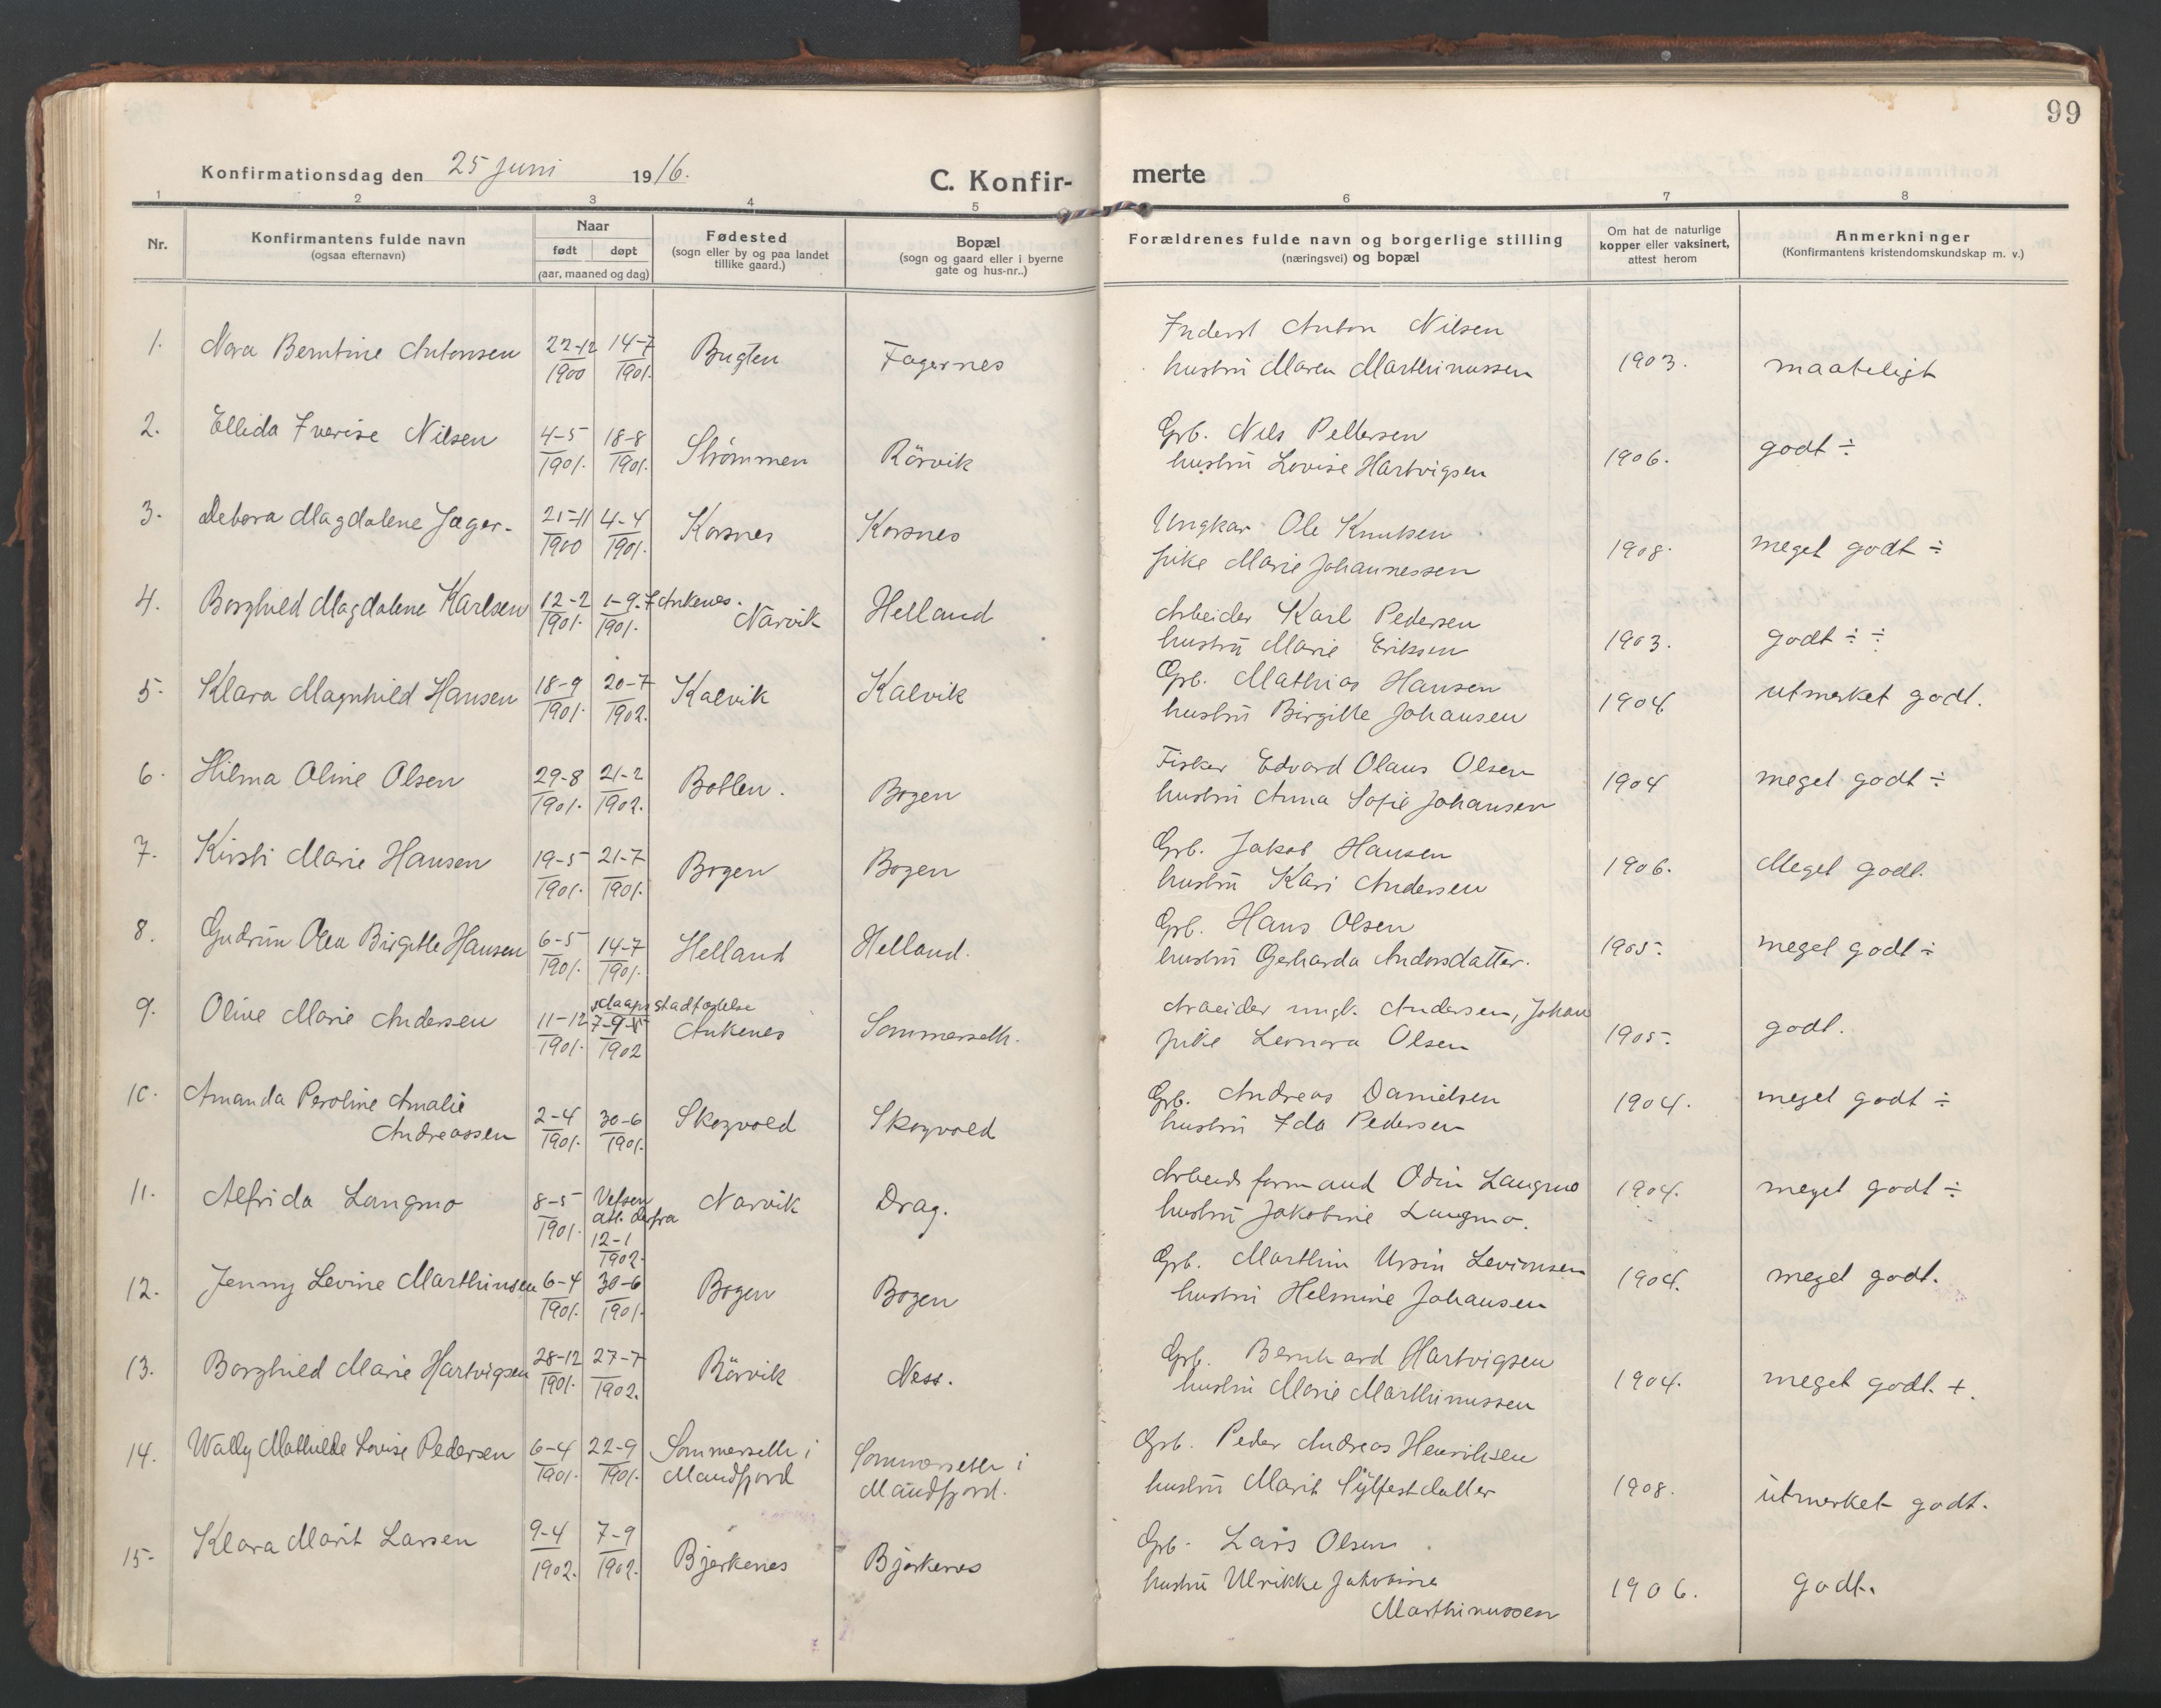 99
Konfirmationsdag den 25 juni 1916.
C. Konfir-merte
1 2 3 4 5 6 7 8
Nr.
Konfirmantens fulde navn
(ogsaa efternavn)
Naar
født døpt
(aar, maaned og dag)
Fødested
(sogn eller by og paa landet
tillike gaard.)
Bopæl
(sogn og gaard eller i byerne
gate og hus-nr..)
Forældrenes fulde navn og borgerlige stilling
(næringsvei) og bopæl
Om hat de naturlige
kopper eller vaksinert,
attest herom
Anmerkninger
(Konfirmantens kristendomskundskap m. v.)
1. Nora Berntine Antonsen 22-12 1900 14-7 1901. Bugten Fagernes
Inderst Anton Nilsen
hustru Maren Marthinussen 1903. maateligt
2. Ellida Iverise Nilsen 4-5 1901. 18-8 1901. Strömmen Rörvik
Grb. Nils Pettersen
hustru Lovise Hartvigsen 1906. godt ÷
3. Debora Magdalene Jæger. 21-11 1900 4-4 1901. Korsnes Korsnes
Ungkar Ole Knutsen
pike Marie Johannessen 1908. meget godt ÷
4. Borghild Magdalene Karlsen 12-2 1901. 1-9. 1901. Ankenes. Narvik Helland
Arbeider Karl Pedersen
hustru Marie Eriksen 1903. godt ÷ ÷
5. Klara Magnhild Hansen 18-9 1901. 20-7 1902. Kalvik Kalvik
Grb. Mathias Hansen
hustru Birgitte Johansen 1904 utmerket godt.
6. Hilma Oline Olsen 29-8 1901. 21-2 1902. Botten. Bogen
Fisker Edvard Olaus Olsen
hustru Anna Sofie Johansen 1904 meget godt ÷
7. Kirsti Marie Hansen 19-5 1901. 21-7 1901. Bogen Bogen
Grb. Jakob Hansen
hustru Kari Andersen 1906. Meget godt.
8. Gudrun Olea Birgitte Hansen 6-5 1901. 14-7 1901. Helland Helland.
Grb. Hans Olsen
hustru Gerharda Andersdatter. 1905. meget godt ÷
9. Oline Marie Andersen 11-12 1901. daaps stadfæstelse 7-9 1902 Ankenes Sommerseth.
Arbeider ungk. Andersen, Johan
pike Leonora Olsen 1905. godt.
10. Amanda Peroline Amalie
Andreassen 2-4 1901. 30-6 1901. Skogvold Skogvold
Grb. Andreas Danielsen
hustru Ida Pedersen 1904. meget godt ÷
11. Alfrida Langmo 8-5 1901. Vefsen att. derfra 12-1 1902. Narvik Drag.
Arbeidsformand Odin Langmo
hustru Jakobine Langmo. 1904. meget godt ÷
12. Jenny Levine Marthinsen 6-4 1901. 30-6 1901. Bogen Bogen
Grb. Marthin Ursin Levinsen
hustru Helmine Johansen 1904. meget godt.
13. Borghild Marie Hartvigsen 28-12 1901. 27-7 1902. Rörvik Ness.
Grb. Bernhard Hartvigsen
hustru Marie Marthinussen 1904. meget godt. +.
14. Wally Mathilde Lovise Pedersen 6-4 1901. 22-9 1901. Sommerseth i
Mandfjord Sommerseth i
Mandfjord.
Grb. Peder Andreas Henriksen
hustru Marit Sylfestdatter 1908. utmerket godt.
15. Klara Marit Larsen 9-4 1902. 7-9 1902. Bjerkenes Bjerkenes
Grb. Lars Olsen
hustru Ulrikke Jakobine
Marthinussen 1906. godt.